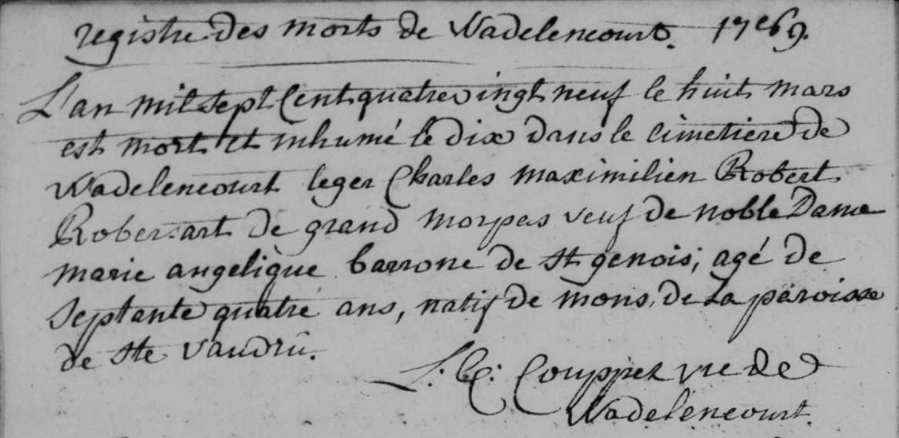 registre des morts de Wadelencourt. 1769.
L'an mil sept Cent quatrevingt neuf le huit mars
est mort et inhumé le dix dans le cimetiere de
Wadelencourt leger Charles maximilien Robert
Robersart de grand morpas veuf de noble Dame
marie angelique barrone de St genois; agé de
septante quatre ans, natif de mons, de La paroisse
de Ste vaudru.
Couppez vre de
Wadelencourt.